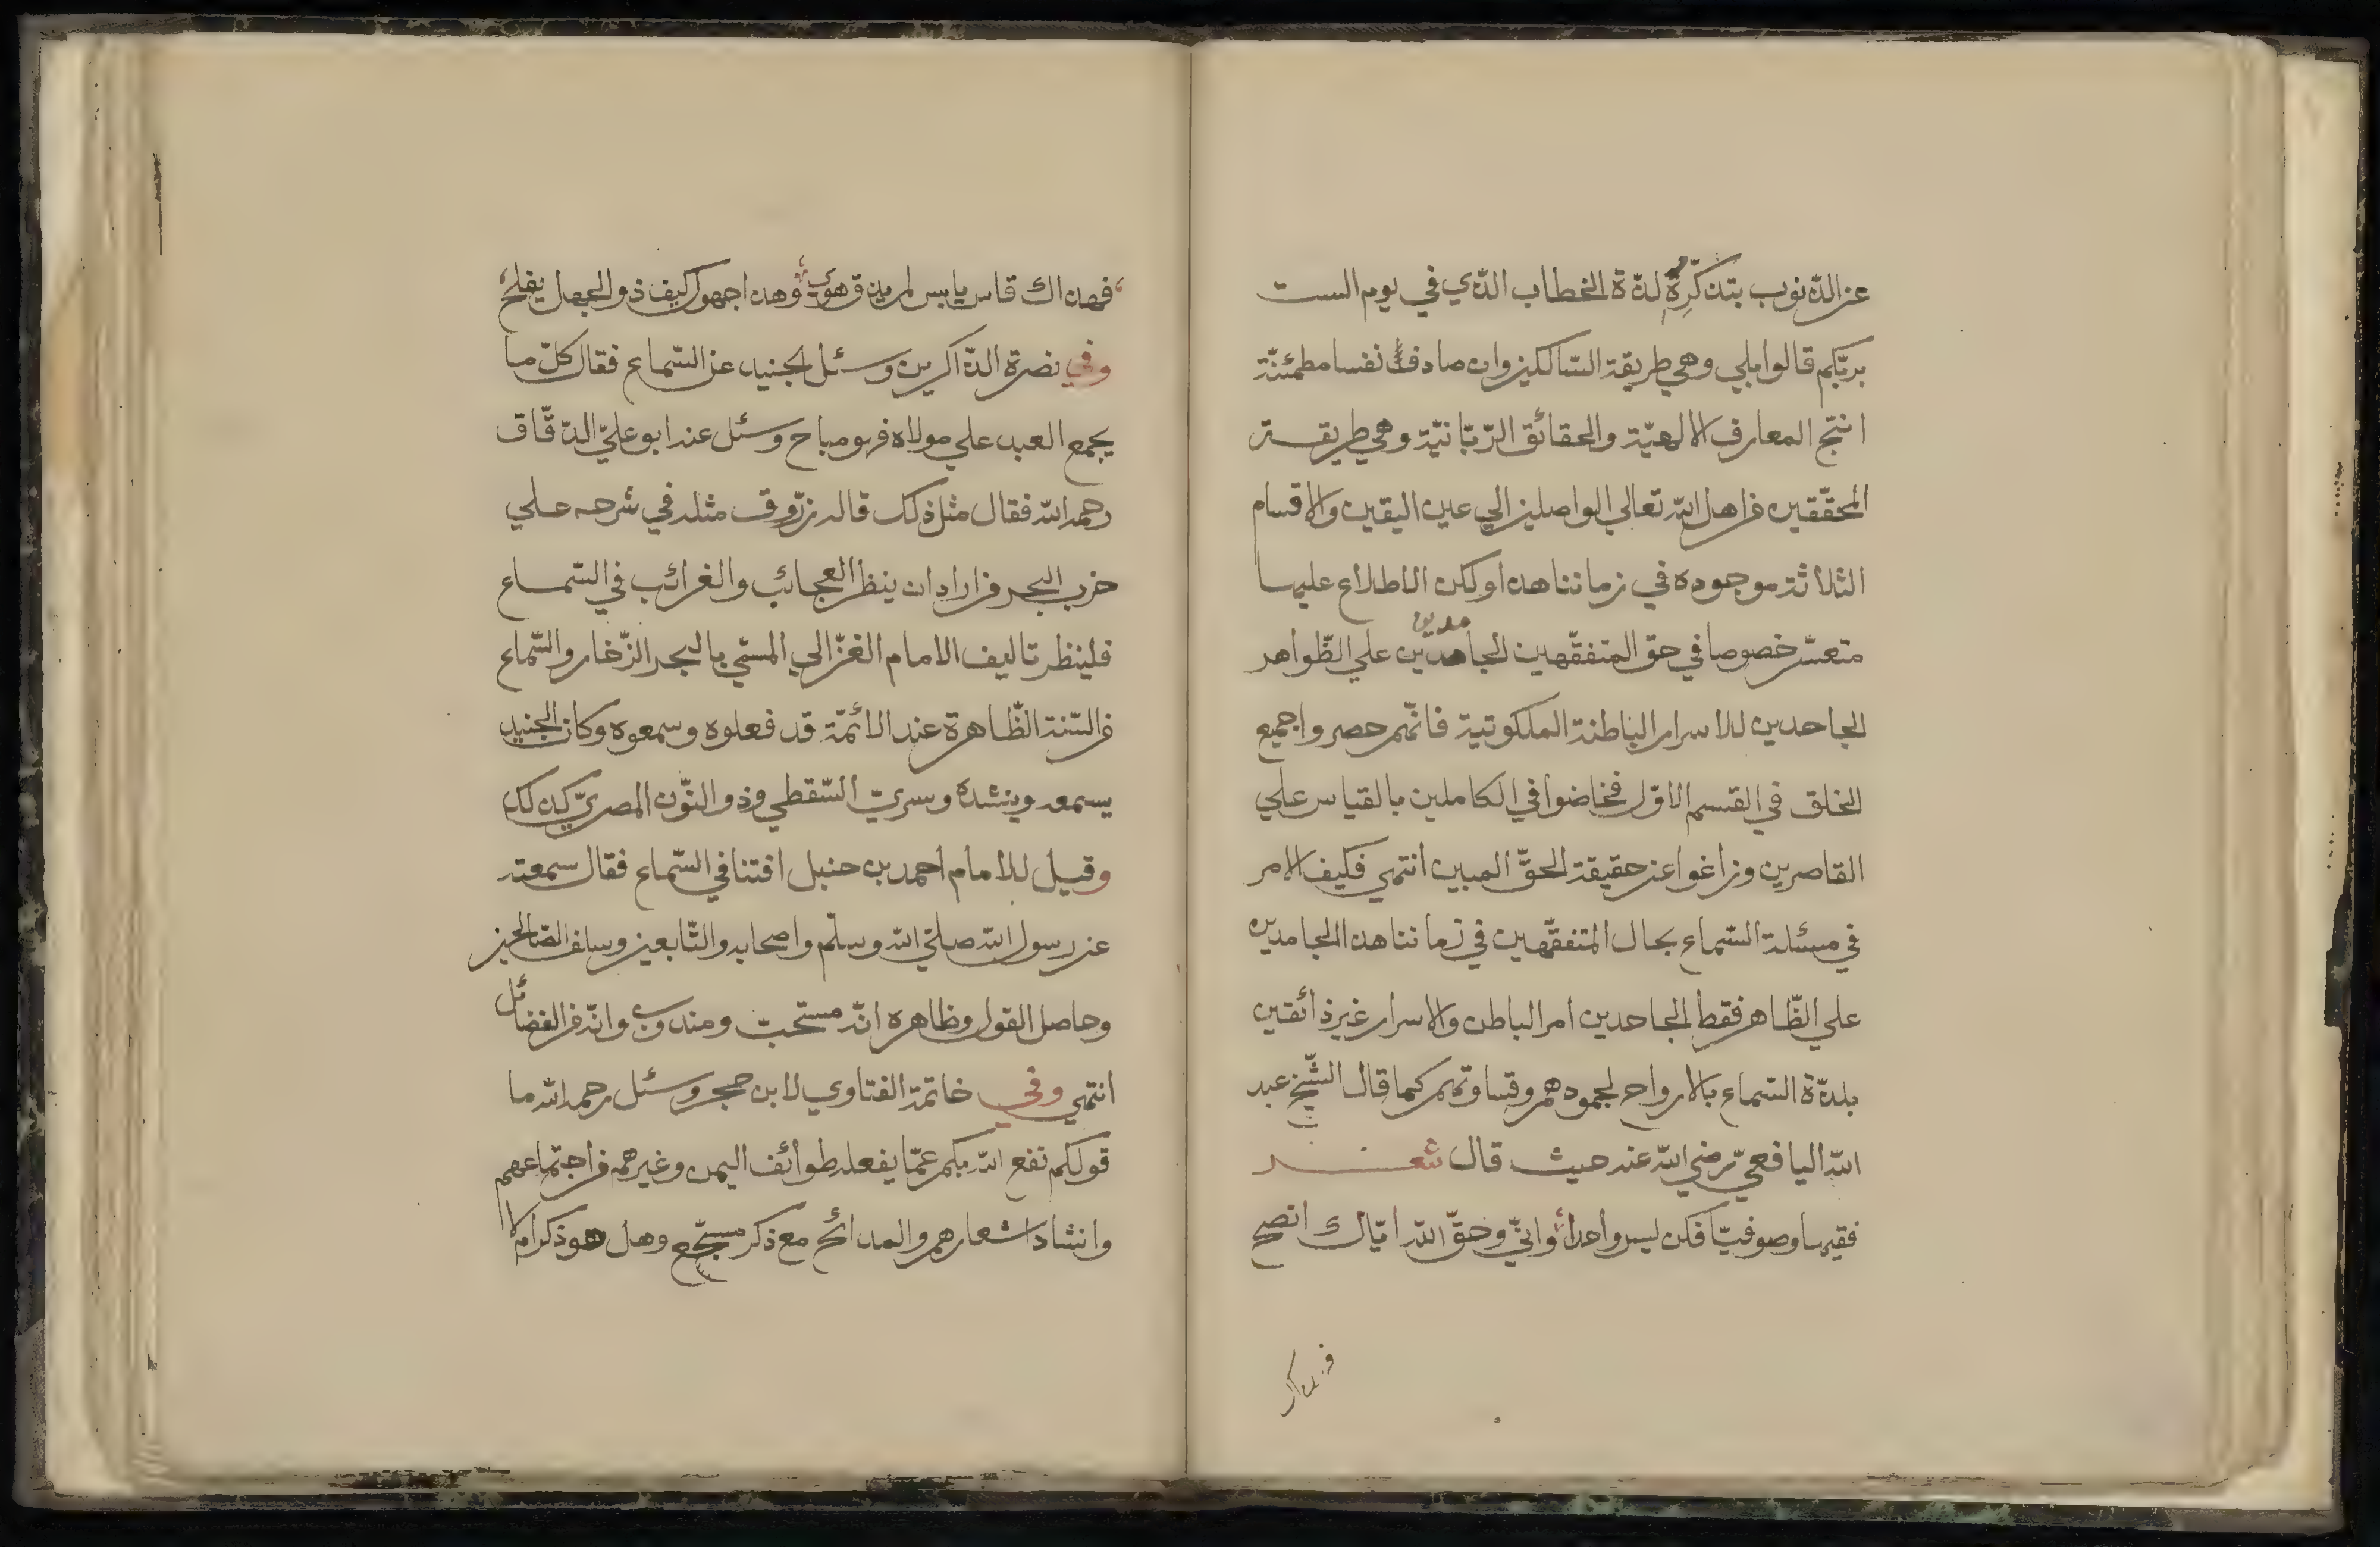 عن الذنوب بتذكّره لذّة الخطاب الذّي في يوم الست
بربّكم قالوا بلي وهي طريقة السّالكين وان صادفت نفسا مطمئنّة
انتج المعارف الالهيّة والحقائق الرّبّانيّة وهي طريقــة
المحقّقين من اهل اللّه تعالي الواصلين الي عين اليقين والاقسام
الثلاثة موجوده في زماننا هذا ولكن الاطلاع عليها
متعسّر خصوصا في حق المتفقّهين الجامدين علي الظّواهر
مدين
الجاحدين للاسرار الباطنة الملكوتية فانّهم حصروا جميع
الخلق في القسم الاوّل فخاضوا في الكاملين بالقياس علي
القاصرين وزاغوا عن حقيقة الحقّ المبين انتهي فكيف الامر
في مسئلة السّماع بحال المتفقّهين في زماننا هذا الجامدين
علي الظّاهر فقط الجاحدين امر الباطن والاسرار غير ذائقين
بلذّة السّماع بالارواح لجمودهم وقساوتهم كما قال الشّيخ عبد
اللّه اليافعيّ رضي اللّه عنه حيث قال شعـــر
فقيها وصوفيّا فكن ليس واحدا وانّي وحقّ اللّه ايّاك انصح
فهذاك
فهذاك قاس يابس لم يذق هوي وهذا جهول كيف ذو الجهل يفلح
وفي نصرة الذّاكرين وسئل الجنيد عن السّماع فقال كلّ ما
يجمع العبد علي مولاه فهو مباح وسئل عنه ابو عليّ الدّقّاق
رحمه اللّه فقال مثل ذلك قاله زرّوق مثله في شرحه علي
حزب البحر فمن اراد ان ينظر العجائب والغرائب في السّماع
فلينظر تاليف الامام الغزّالي المسمّي بالبحر الزّخار والسّماع
من السّنة الظّاهرة عند الائمّة قد فعلوه وسمعوه وكان الجنيد
يسمعه وينشده وسريّ السّقطي وذو النّون المصريّ كذلك
وقيل للامام احمد بن حنبل افتنا في السّماع فقال سمعته
عن رسول اللّه صلّي اللّه وسلّم واصحابه والتّابعين وسلف الصّالحين
وحاصل القول وظاهره انّه مستحبّ ومندوب وانّه من الفضائل
انتهي وفي خاتمة الفتاوي لابن حجر وسئل رحمه اللّه ما
قولكم نفع اللّه بكم عمّا يفعله طوائف اليمن وغيرهم من اجتماعهم
وانشاد اشعارهم والمدائح مع ذكر مسجّع وهل هو ذكر ام لا